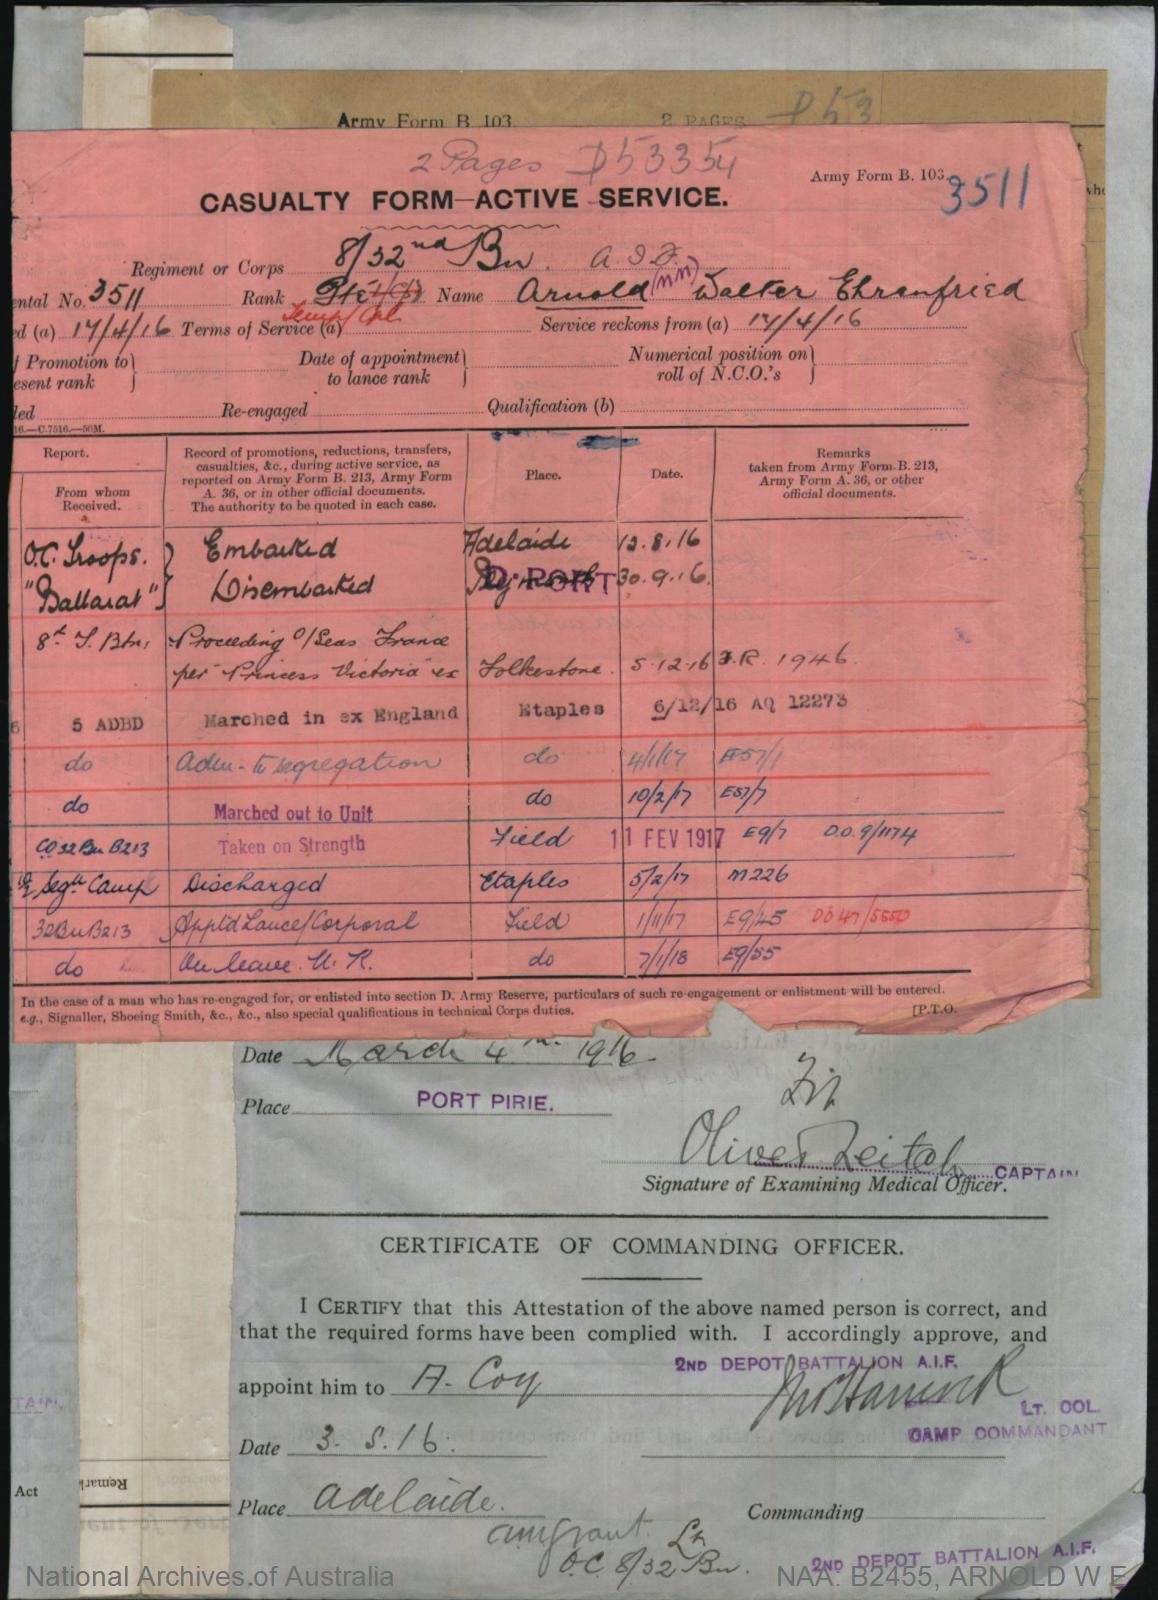 Army Form B. 103. 2 PAGES D53
2 Pages D53354
Army Form B. 103.
3511
CASUALTY FORM—ACTIVE SERVICE.
Regiment or Corps 8/32nd Bn. A.I.F.
ental No. 3511 Rank Pte Name Arnold (NN) Walter Ehrenfried
Temp/Cpl.
ed (a) 17/4/16 Terms of Service (a) Service reckons from (a) 17/4/16
f Promotion to } Date of appointment } Numerical position on }
esent rank to lance rank roll of N.C.O.'s
ded Re-engaged Qualification (b)
16.—C.7516.—50M.
Report. Record of promotions, reductions, transfers, casualties, &c., during active service, as reported on Army Form B. 213, Army Form A. 36, or in other official documents. The authority to be quoted in each case. Place. Date. Remarks taken from Army Form B. 213, Army Form A. 36, or other official documents.
From whom Received.
O.C. Troops. } Embarked Adelaide 12.8.16
"Ballarat" } Disembarked D. PORT 30.9.16.
8th T. Btn. Proceeding O/Seas France
per "Princess Victoria" ex Folkestone. 5.12.16 F.R. 1946.
5 ADBD Marched in ex England Etaples 6/12/16 AQ 12273
do Adm. to segregation do 4/1/17 E57/1
do Marched out to Unit do 10/2/17 E57/7
CO 32 Bn B213 Taken on Strength Field 11 FEV 1917 E9/7 D.O. 9/1174
Segn Camp Discharged Etaples 5/2/17 M226
32 Bn B213 Apptd Lance/Corporal Field 1/11/17 E9/45 DO 47/5550
do On leave. U.K. do 7/1/18 E9/55
In the case of a man who has re-engaged for, or enlisted into section D. Army Reserve, particulars of such re-engagement or enlistment will be entered.
e.g., Signaller, Shoeing Smith, &c., &c., also special qualifications in technical Corps duties. [P.T.O.
Date March 4th 1916.
Place PORT PIRIE. Fit
Oliver Leitch CAPTAIN
Signature of Examining Medical Officer.
CERTIFICATE OF COMMANDING OFFICER.
I CERTIFY that this Attestation of the above named person is correct, and
that the required forms have been complied with. I accordingly approve, and
2ND DEPOT BATTALION A.I.F.
appoint him to A. Coy
LT. COL.
CAMP COMMANDANT
Date 3.5.16.
Act
Remark
Place Adelaide. Commanding
Lt
O.C. 8/32 Bn. 2ND DEPOT BATTALION A.I.F.
National Archives of Australia NAA: B2455, ARNOLD W E